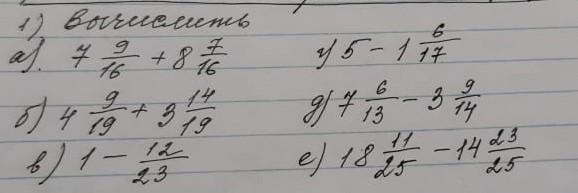 1) Вычислить
а). 7 9/16 + 8 7/16 г) 5 - 1 6/17
б) 4 9/19 + 3 14/19 д) 7 6/13 - 3 9/14
в) 1 - 12/23 е) 18 11/25 - 14 23/25